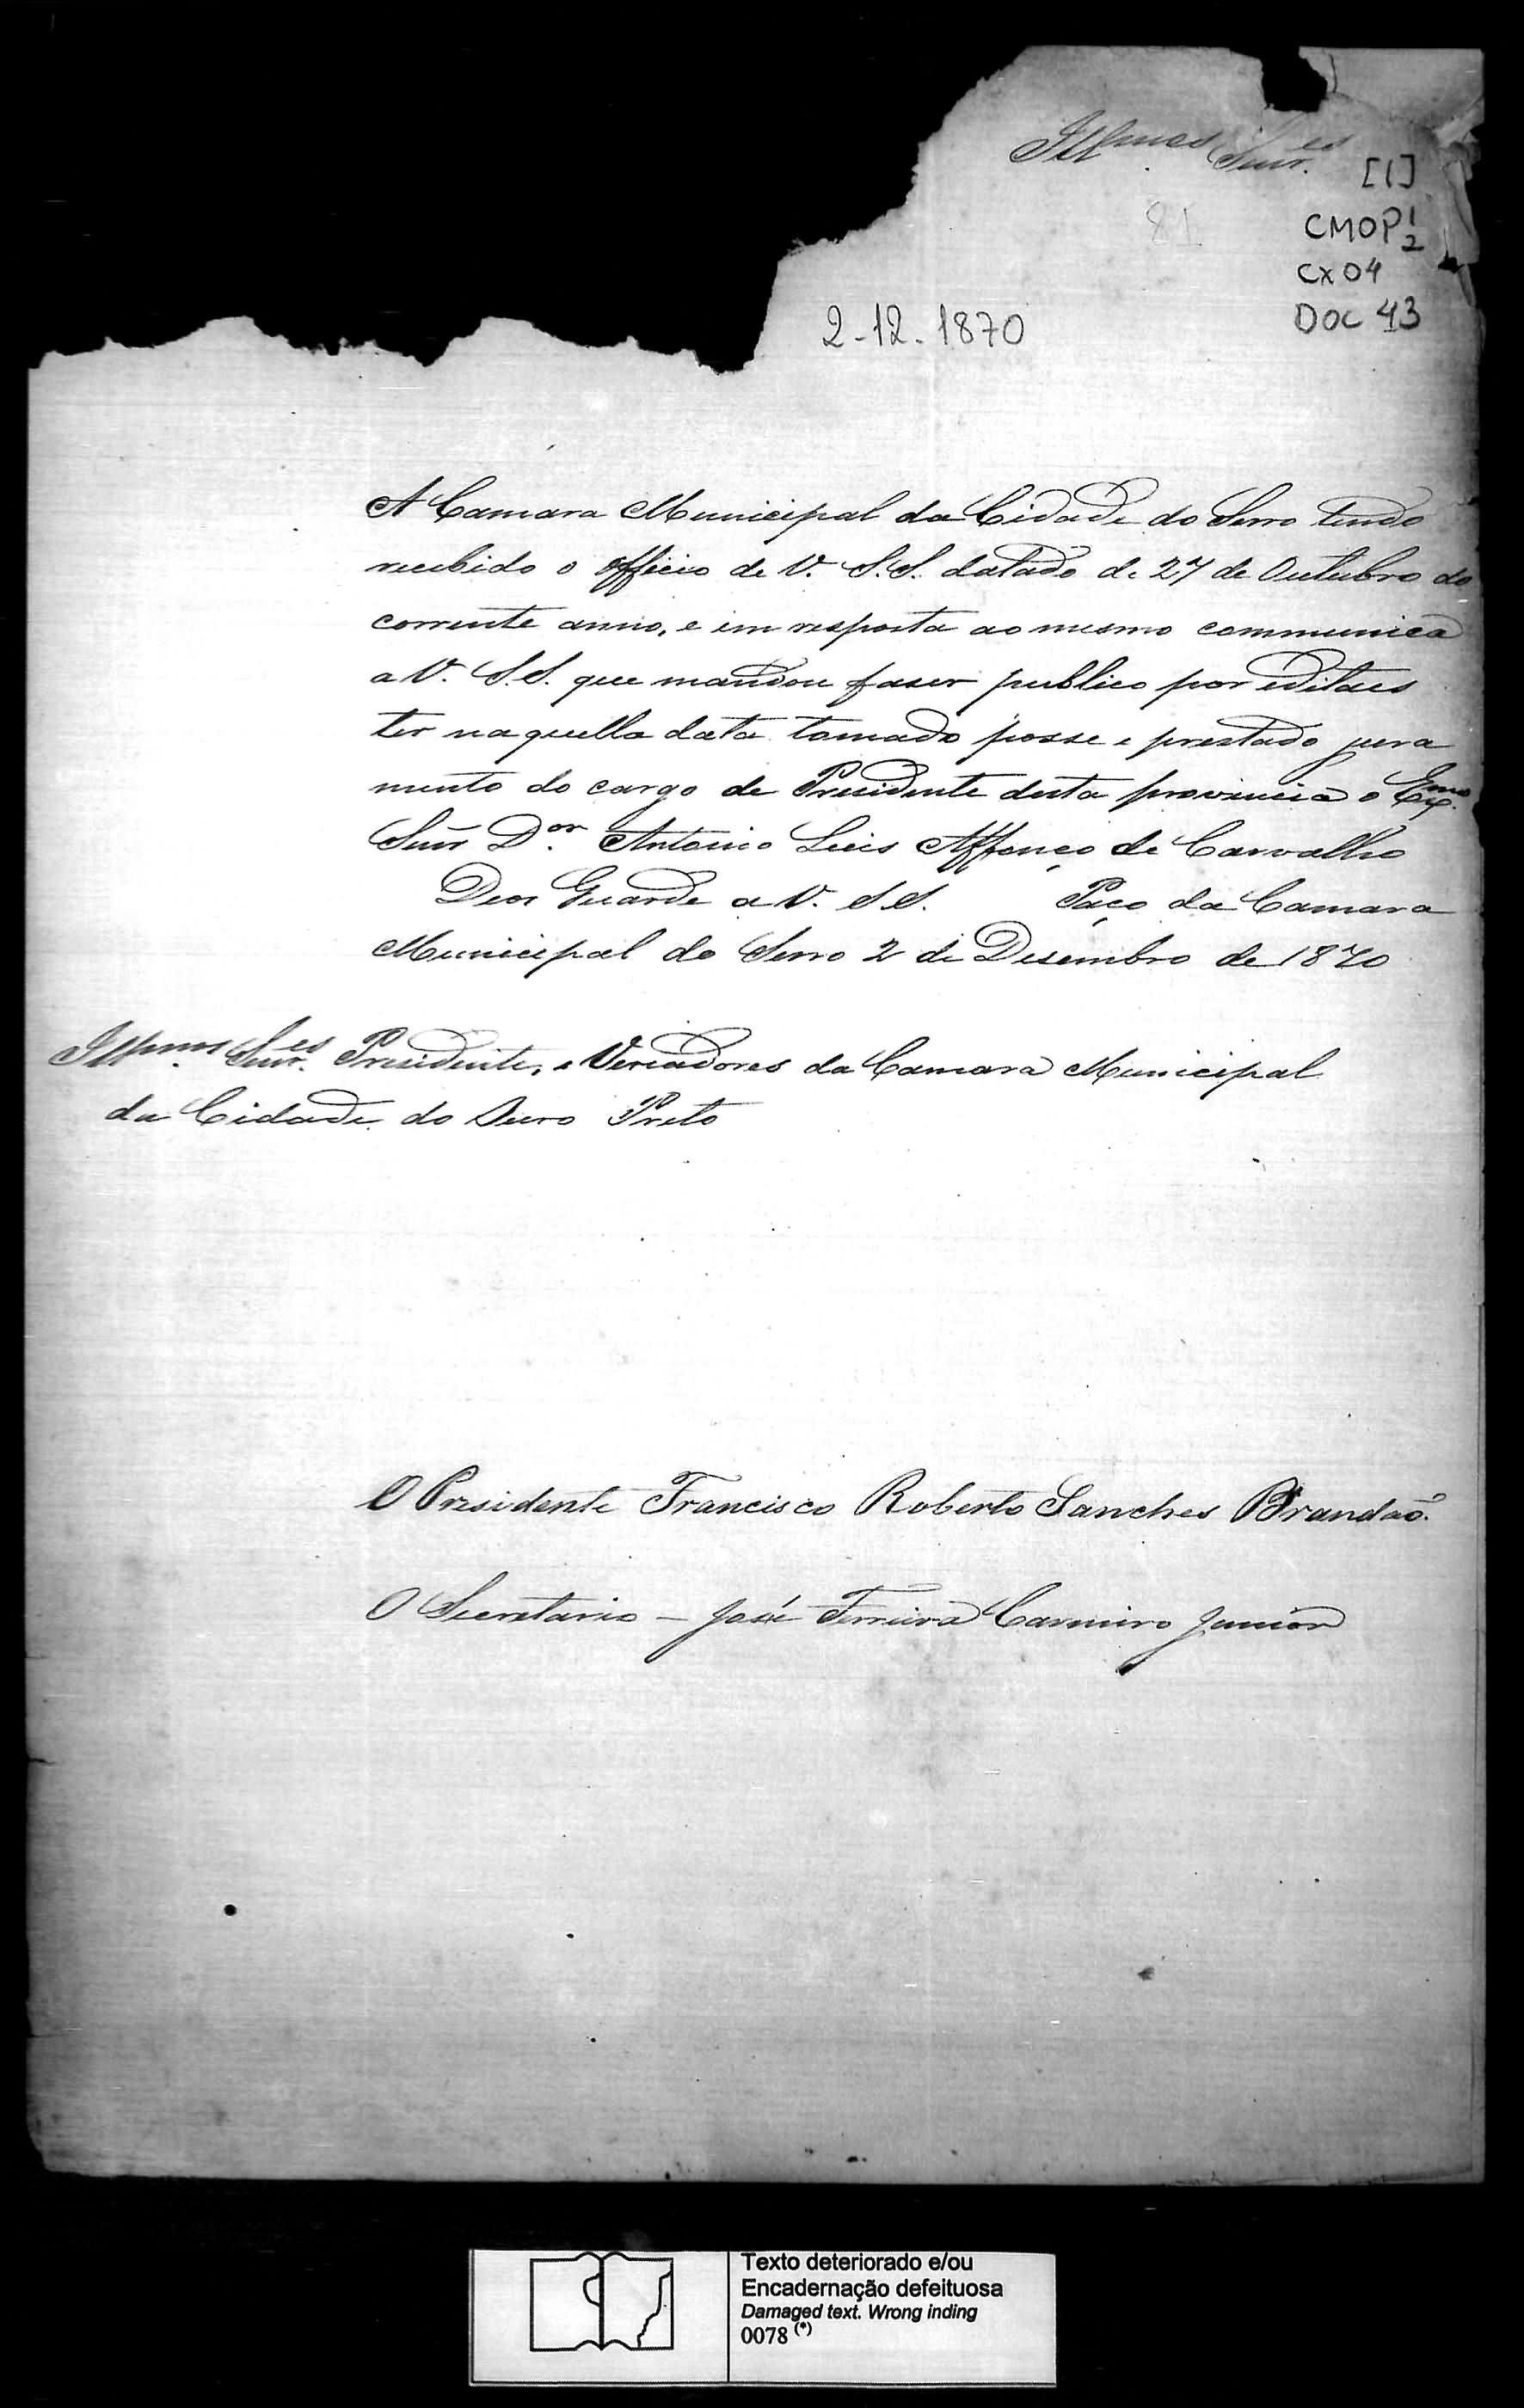 Illmos Snr.es
[1]
81
CMOP 1/2
CX 04
DOC 43
2-12-1870
A Camara Municipal da Cidade do Serro tendo
recebido o officio de V. S.S. datado de 27 de Outubro do
corrente anno, e em resposta ao mesmo communica
a V. S.S. que mandou faser publico por editaes
ter naquella data tomado posse e prestado jura
mento do cargo de Presidente desta provincia o Exmo.
Snr. D.or Antonio Luis Affonço de Carvalho
Deos Guarde a V. S.S. Paço da Camara
Municipal do Serro 2 de Desembro de 1870
Illmos. Snr.es Presidente, e Vereadores da Camara Municipal
da Cidade do Ouro Preto
O Presidente Francisco Roberto Sanches Brandaõ.
O Secretario – José Ferreira Carneiro Junior
Texto deteriorado e/ou
Encadernação defeituosa
Damaged text. Wrong inding
0078 (*)